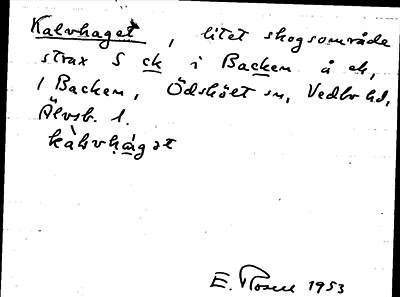 Kalvhaget, litet skogsområde
strax S ck i Backen å ek,
1 Backen, Ödskölt sn, Vedbo hd,
Älvsb. l.
E. Rosell 1953